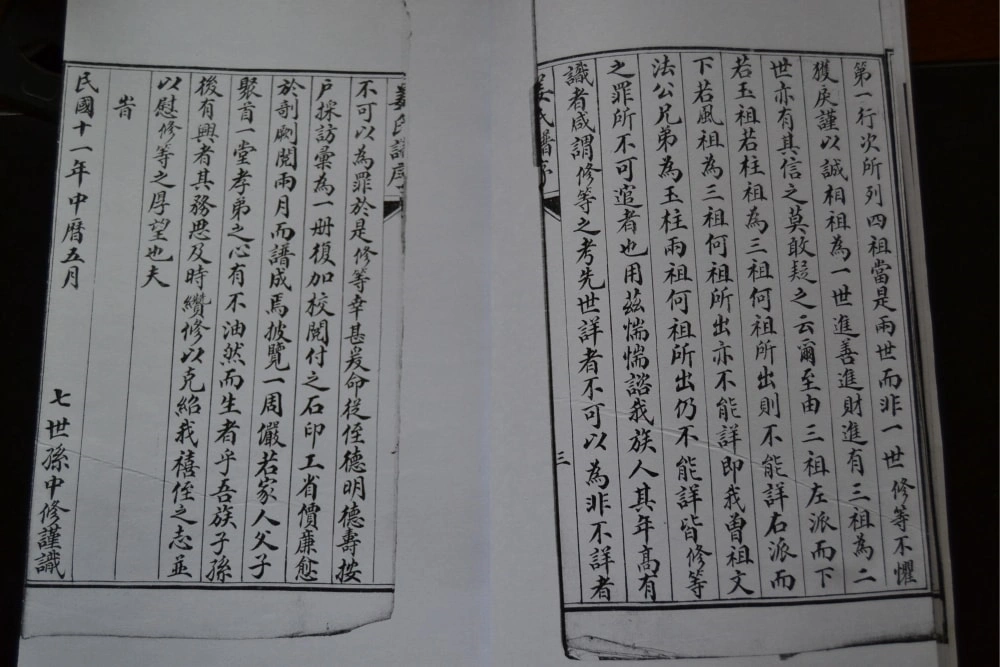 第一行次所列四祖當是兩世而非一世修等不懼
獲戾謹以誠相祖為一世進善進財進有三祖為二
世亦有其信之莫敢疑之云爾至由三祖左派而下
若玉祖若柱祖為三祖何祖所出則不能詳右派而
下若風祖為三祖何祖所出亦不能詳即我曾祖文
法公兄弟為玉柱兩祖何祖所出仍不能詳皆修等
之罪所不可逭者也用茲惴惴諮我族人其年高有
識者咸謂修等之考先世詳者不可以為非不詳者
姜氏譜序
三
姜氏譜序
不可以為罪於是修等幸甚爰命從侄德明德壽按
戶採訪彙為一册復加校閱付之石印工省價廉愈
於剞劂閱兩月而譜成焉披覽一周儼若家人父子
聚首一堂孝弟之心有不油然而生者乎吾族子孫
後有興者其務思及時纘修以克紹我禧侄之志並
以慰修等之厚望也夫
旹
民國十一年中曆五月
七世孫中修謹識